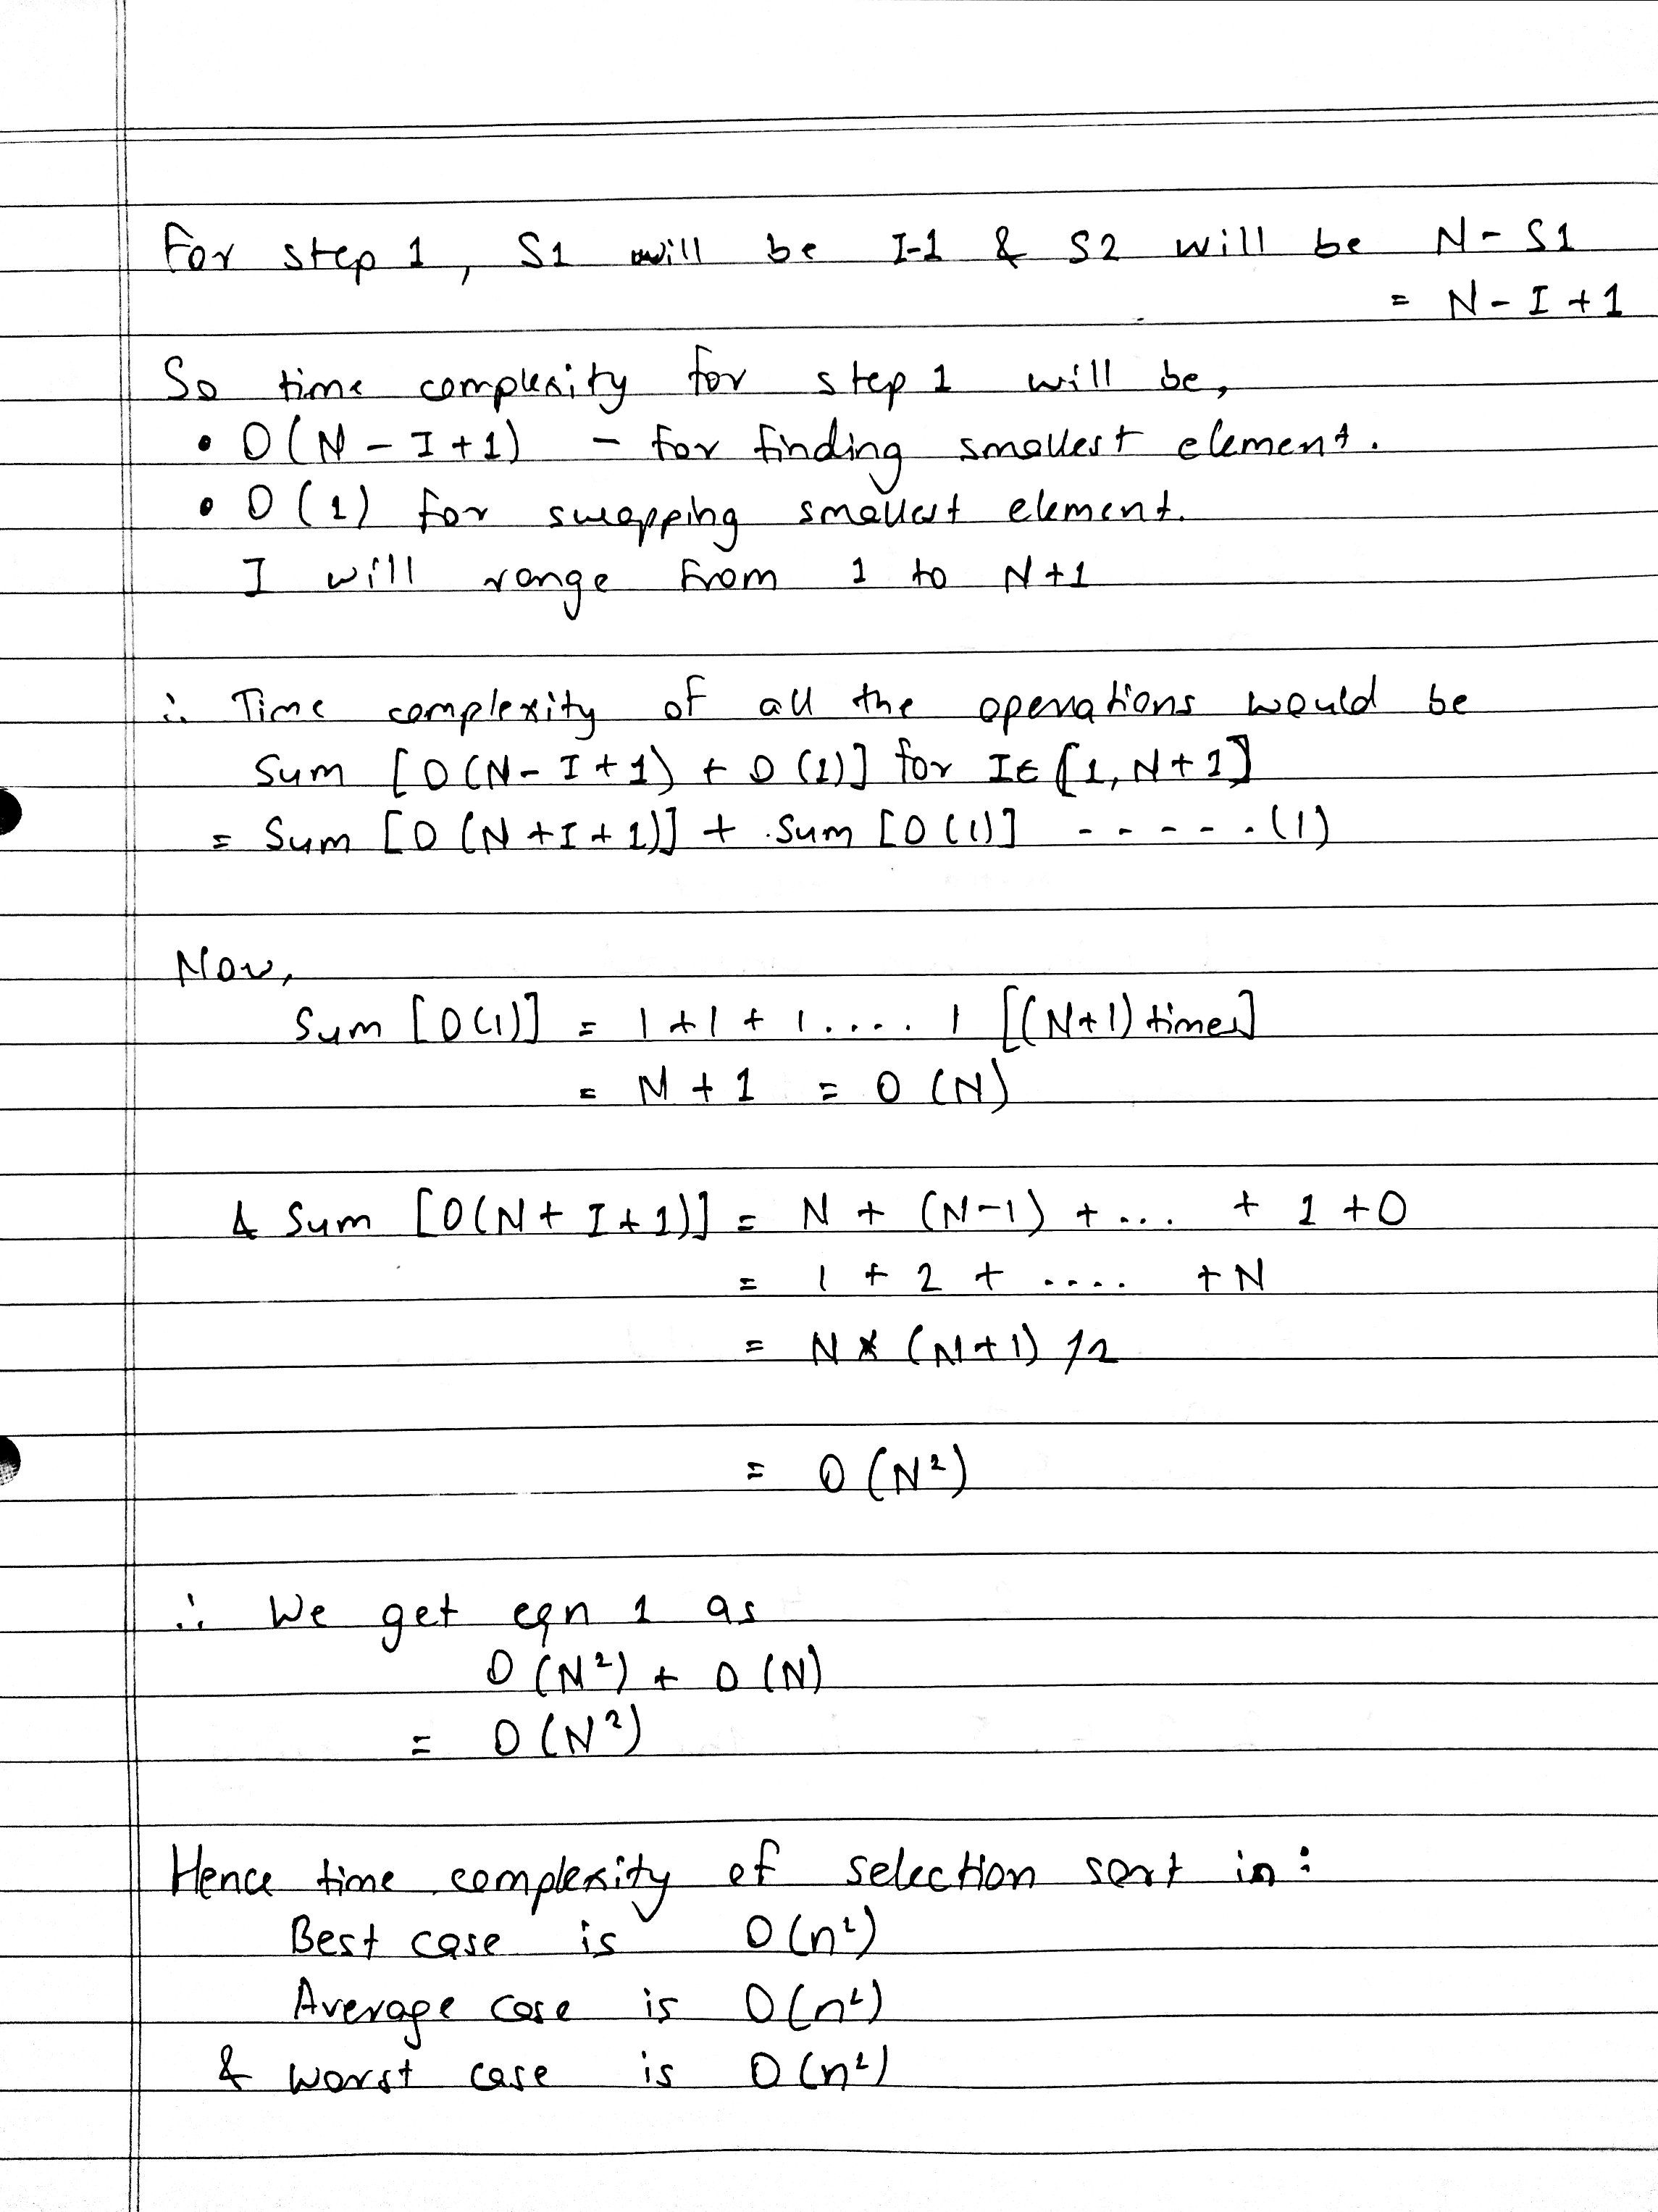 For step 1, S1 will be I-1 & S2 will be N - S1
= N - I + 1
So time complexity for step 1 will be,
• O(N - I + 1) - for finding smallest element.
• O(1) for swapping smallest element.
I will range from 1 to N+1
∴ Time complexity of all the operations would be
Sum [O(N - I + 1) + O(1)] for I ∈ [1, N+1]
= Sum [O(N + I + 1)] + Sum [O(1)] - - - - - . (1)
Now,
Sum [O(1)] = 1 + 1 + 1 . . . . 1 [(N+1) times]
= N + 1 = O(N)
& Sum [O(N + I + 1)] = N + (N-1) + ... + 1 + 0
= 1 + 2 + .... + N
= N * (N+1) / 2
= O(N²)
∴ We get eqn 1 as
O(N²) + O(N)
= O(N²)
Hence time complexity of selection sort in :
Best case is O(n²)
Average case is O(n²)
& worst case is O(n²)